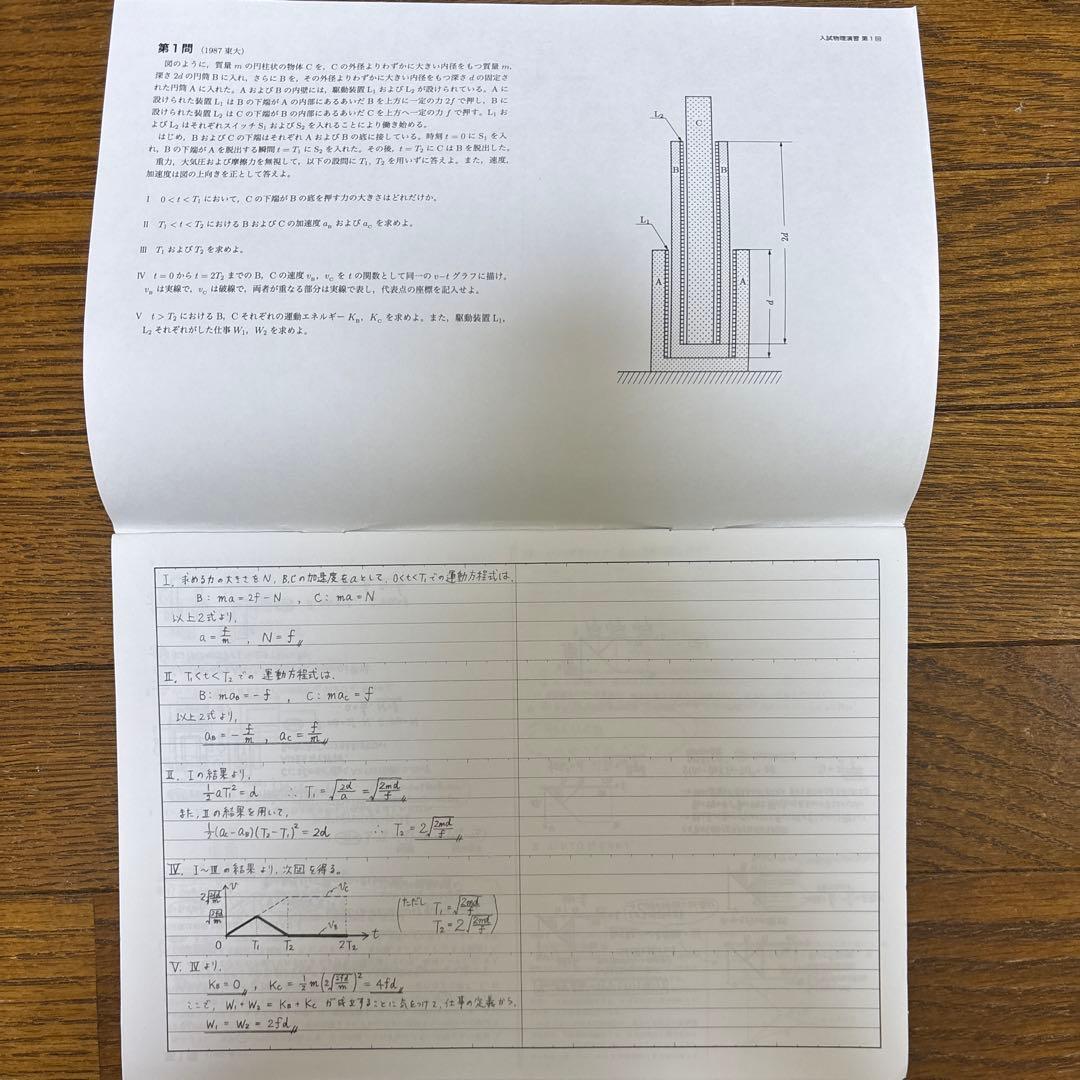 入試物理演習 第1回
第1問 (1987 東大)
図のように，質量 m の円柱状の物体 C を，C の外径よりわずかに大きい内径をもつ質量 m，
深さ 2d の円筒 B に入れ，さらに B を，その外径よりわずかに大きい内径をもつ深さ d の固定さ
れた円筒 A に入れた。A および B の内壁には，駆動装置 L₁ および L₂ が設けられている。A に
設けられた装置 L₁ は B の下端が A の内部にあるあいだ B を上方に一定の力 2f で押し，B に
設けられた装置 L₂ は C の下端が B の内部にあるあいだ C を上方へ一定の力 f で押す。L₁ お
よび L₂ はそれぞれスイッチ S₁ および S₂ を入れることにより働き始める。
はじめ，B および C の下端はそれぞれ A および B の底に接している。時刻 t = 0 に S₁ を入
れ，B の下端が A を脱出する瞬間 t = T₁ に S₂ を入れた。その後，t = T₂ に C は B を脱出した。
重力，大気圧および摩擦力を無視して，以下の設問に T₁，T₂ を用いずに答えよ。また，速度，
加速度は図の上向きを正として答えよ。
I 0 < t < T₁ において，C の下端が B の底を押す力の大きさはどれだけか。
II T₁ < t < T₂ における B および C の加速度 a_B および a_C を求めよ。
III T₁ および T₂ を求めよ。
IV t = 0 から t = 2T₂ までの B，C の速度 v_B，v_C を t の関数として同一の v-t グラフに描け。
v_B は実線で，v_C は破線で，両者が重なる部分は実線で表し，代表点の座標を記入せよ。
V t > T₂ における B，C それぞれの運動エネルギー K_B，K_C を求めよ。また，駆動装置 L₁，
L₂ それぞれがした仕事 W₁，W₂ を求めよ。
L₂
C
B B
L₁
A A
2d
d
I. 求める力の大きさを N, B,C の加速度を a として, 0<t<T₁ での運動方程式は,
B: ma = 2f − N , C: ma = N
以上2式より,
a = f/m , N = f
II. T₁<t<T₂ での 運動方程式は,
B: ma_B = −f , C: ma_C = f
以上2式より,
a_B = −f/m , a_C = f/m
III. I の結果より,
½aT₁² = d ∴ T₁ = √(2d/a) = √(2md/f)
また, II の結果を用いて,
½(a_C − a_B)(T₂ − T₁)² = 2d ∴ T₂ = 2√(2md/f)
IV. I〜III の結果より, 次図を得る。
v
2√(2fd/m)
√(2fd/m)
v_C
v_B
0 T₁ T₂ 2T₂ t
(ただし T₁ = √(2md/f)
T₂ = 2√(2md/f))
V. IV より,
K_B = 0 , K_C = ½m(2√(2fd/m))² = 4fd
ここで, W₁ + W₂ = K_B + K_C が成立することに気をつけて, 仕事の定義から,
W₁ = W₂ = 2fd